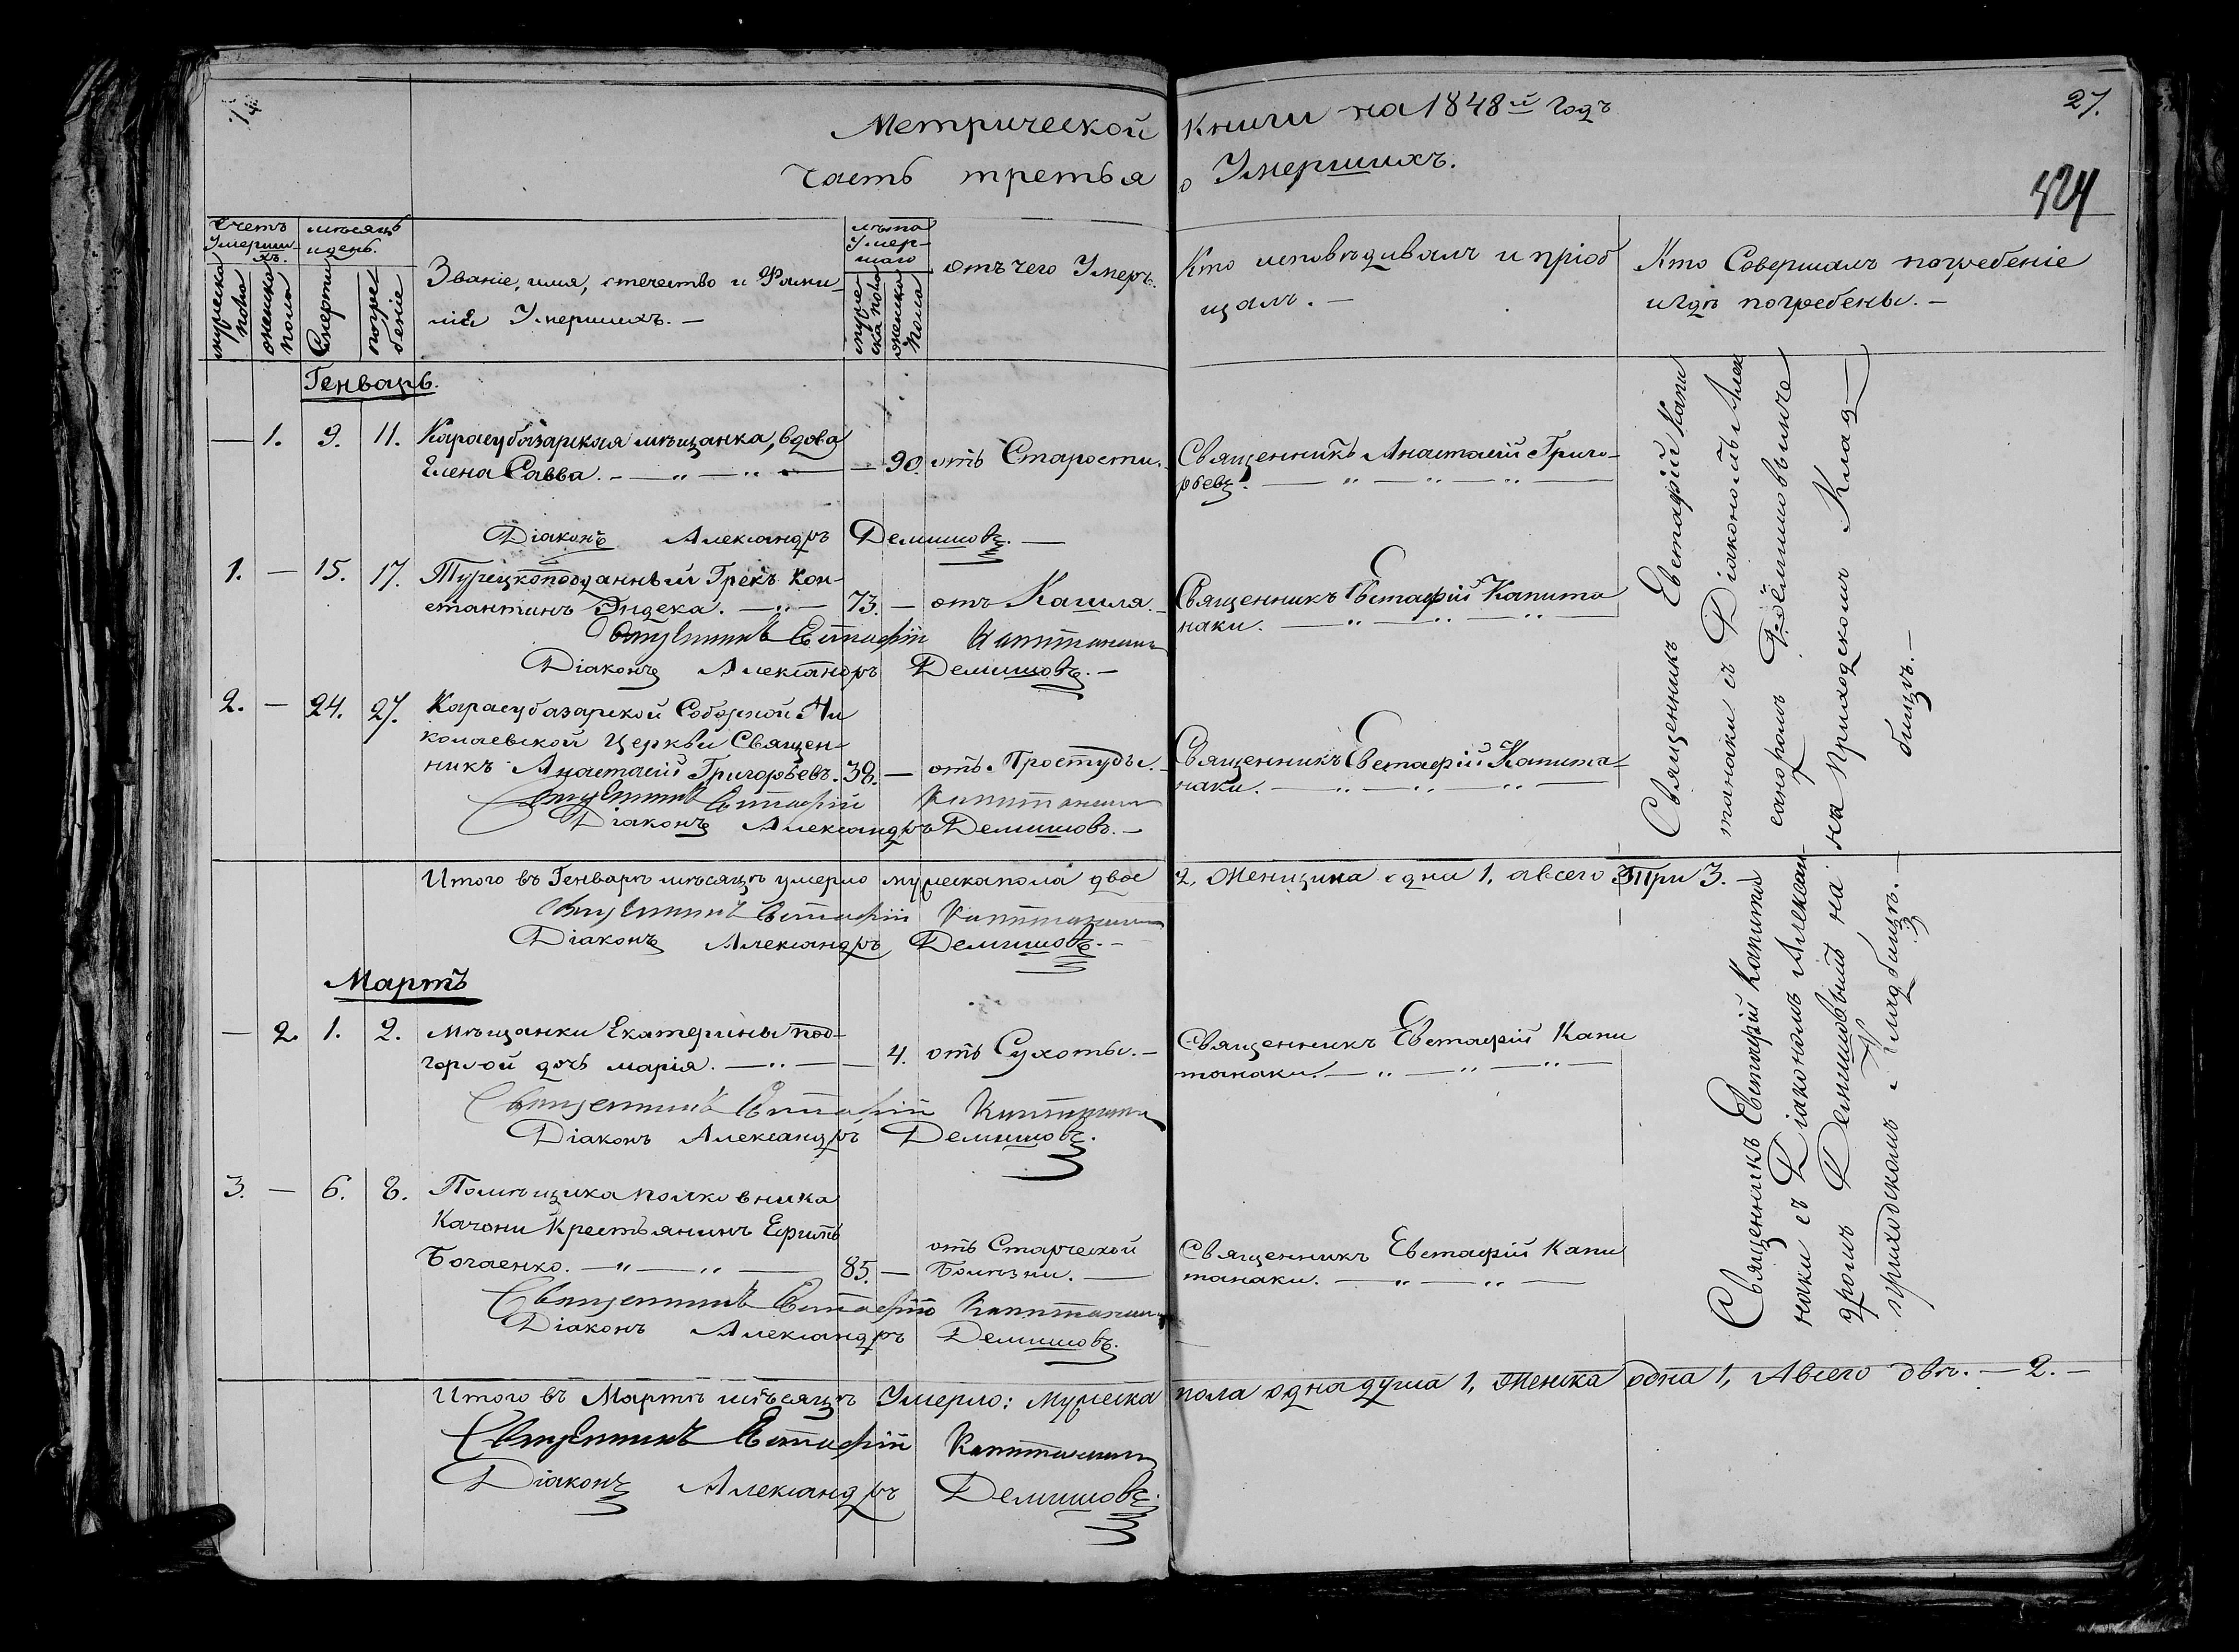 Метрической книги на 1848й годъ
27.
часть третья о Умершихъ.
424
Счетъ Умерши-хъ.
мѣсяцъ и день.
лѣта Умер-шаго
мужеска пола
женска пола
Смерти
погребеніе
Званіе, имя, отечество и Фами-
лія Умершихъ. —
мужеска пола
женска пола
отъ чего Умеръ.
Кто исповѣдывалъ и пріоб
щалъ. —
Кто Совершалъ погребеніе
и гдѣ погребены. —
Генварь.
— 1. 9. 11. Карасубазарская мѣщанка, вдова
Елена Савва. — „ — „ — — 90. отъ Старости.
Священникъ Анастасій Григо-
рьевъ. — „ — „ — „ —
Діаконъ Александръ Демишовъ. —
1. — 15. 17. Турецкоподданный Грекъ Кон-
стантинъ Эндека. — „ — 73. — отъ Кашля. —
Священникъ Евстафій Капита
наки. — „ — „ — „ —
Священникъ Евстафій Капитанаки
Діаконъ Александръ Демишовъ. —
2. — 24. 27. Карасубазарской Соборной Ни
колаевской Церкви Священ-
никъ Анастасій Григорьевъ. 38. — отъ Простуды. —
Священникъ Евстафій Капита-
наки. — „ — „ — „ —
Священникъ Евстафій Капитанаки
Діаконъ Александръ Демишовъ. —
Священникъ Евстафій Капи
танаки съ Діакономъ Алек
сандромъ Демишовымъ
на Приходскомъ Клад—
бищѣ. —
Итого въ Генварѣ мѣсяцѣ умерло мужеска пола двое 2, Женщина одни 1, а всего Три 3. —
Священникъ Евстафій Капитанаки
Діаконъ Александръ Демишовъ. —
Мартъ
— 2. 1. 2. мѣщанки Екатерины под-
горной дочь марія. — „ — — 4. отъ Сухоты. —
Священникъ Евстафій Капи
танаки. — „ — „ — „ —
Священникъ Евстафій Капитанаки
Діаконъ Александръ Демишовъ.
3. — 6. 8. Помѣщика полковника
Качони Крестьянинъ Ефимъ
Богаенко. — „ — „ — 85. — отъ Старческой
Болѣзни. —
Священникъ Евстафій Капи
танаки. — „ — „ —
Священникъ Евстафій Капитанаки
Діаконъ Александръ Демишовъ.
Священникъ Евстафій Капита
наки съ Діакономъ Алексан-
дромъ Демишовымъ на
приходскомъ Кладбищѣ. —
Итого въ Мартѣ мѣсяцѣ Умерло: Мужеска пола одна душа 1, Женска одна 1, А всего двѣ. — 2. —
Священникъ Евстафій Капитанаки
Діаконъ Александръ Демишовъ.